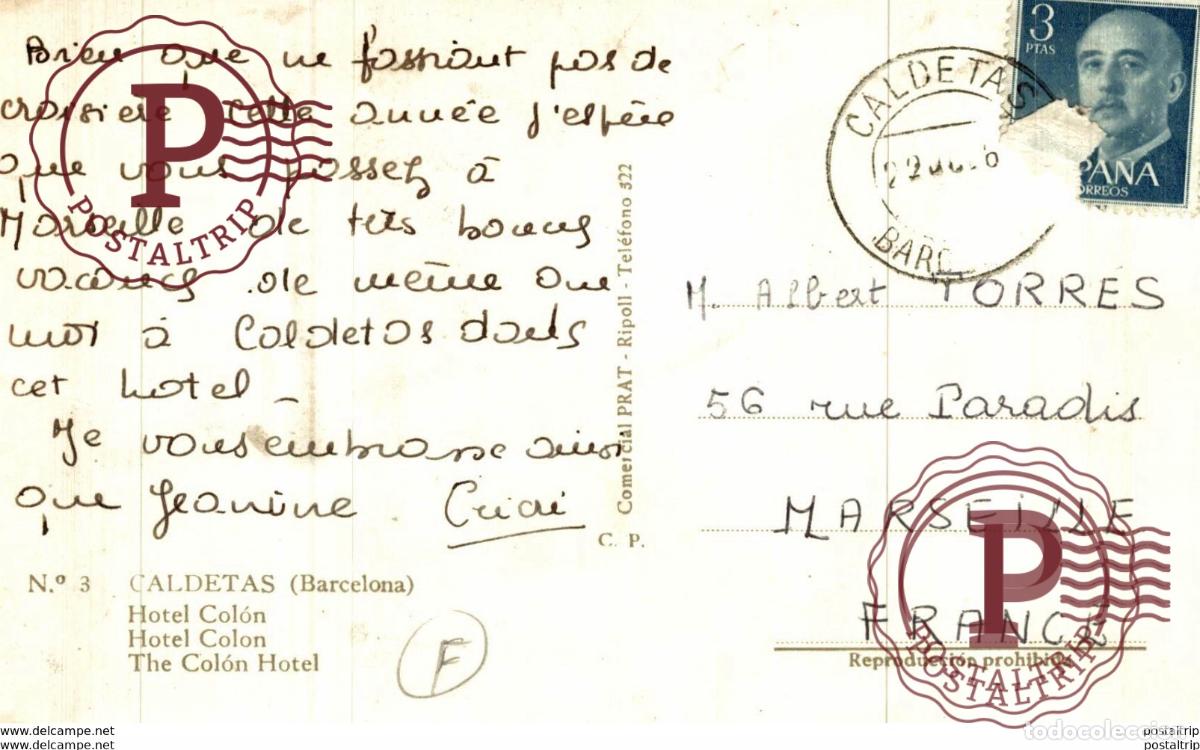 Bien que ne faisant pas de
croisière cette année j'espère
que vous passez à
Marseille de très bonnes
vacances de même que
moi à Caldetas dans
cet hotel -
Je vous embrasse ainsi
que Jeanine
C. P.
Nº 3 CALDETAS (Barcelona)
Hotel Colón
Hotel Colon
The Colón Hotel
F
Comercial PRAT - Ripoll - Teléfono 522
3
PTAS
ESPAÑA
CORREOS
CALDETAS
BARC
M. Albert TORRES
56 rue Paradis
MARSEILLE
FRANCE
Reproducción prohibida
P
POSTALTRIP
P
POSTALTRIP
POSTALTRIP
todocoleccion
www.delcampe.net
postaltrip
www.delcampe.net
postaltrip